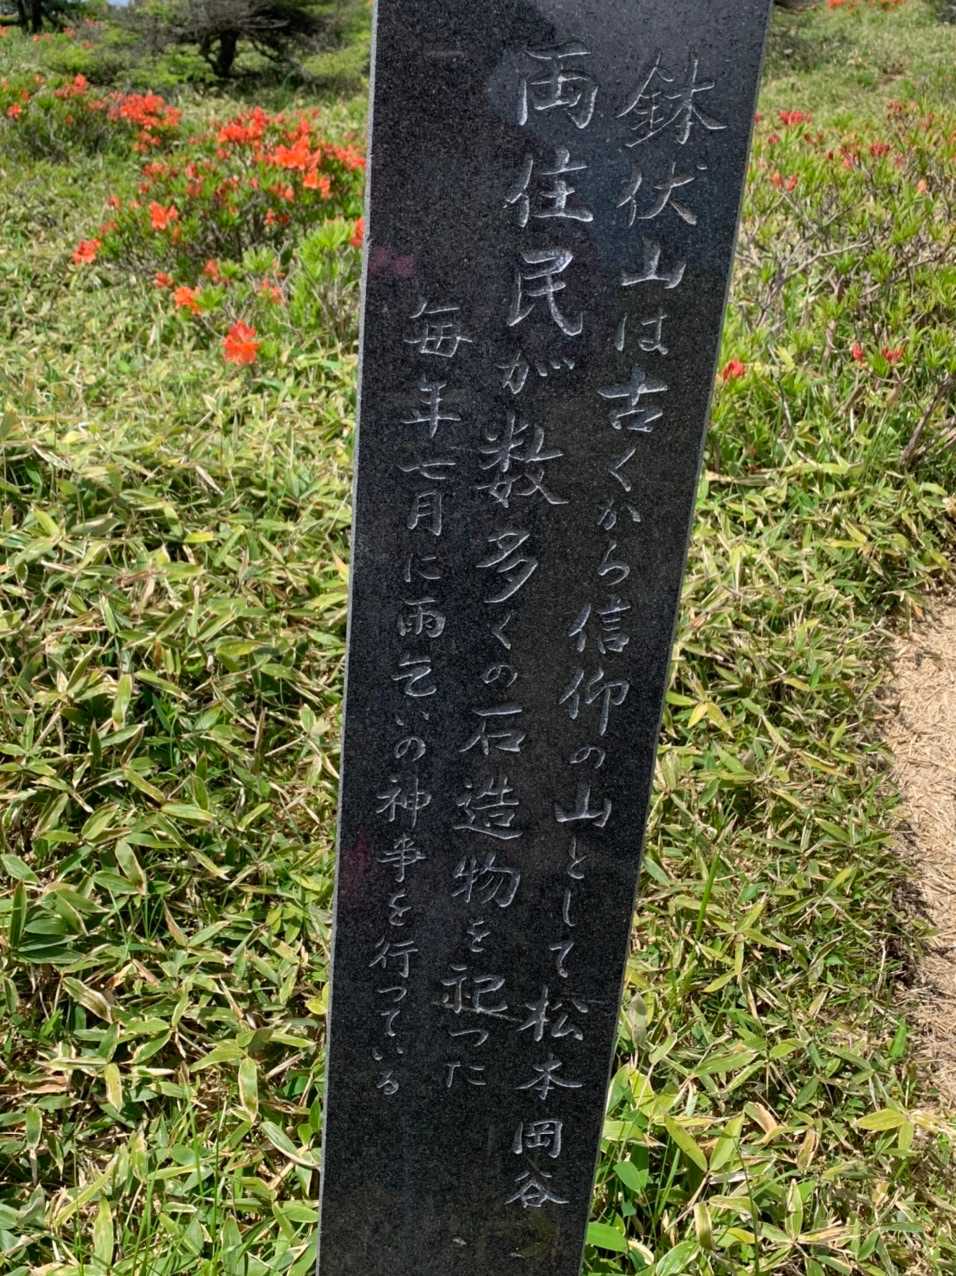 鉢伏山は古くから信仰の山として松本岡谷
両住民が数多くの石造物を祀った
毎年七月に雨乞いの神事を行っている